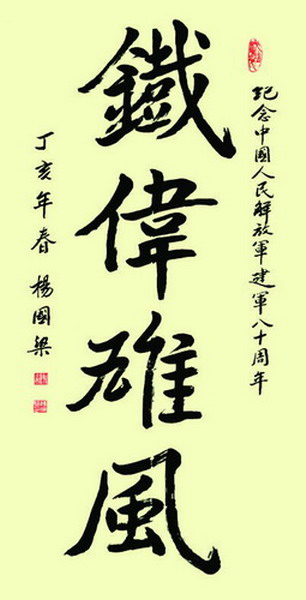 紀念中國人民解放軍建軍八十周年
鐵偉雄風
丁亥年春 楊國梁